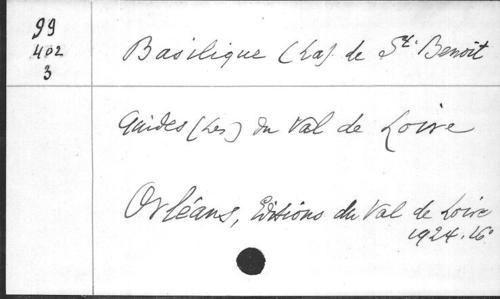 99
402
3
Basilique (La) de St. Benoit
Guides (Les) du Val de Loire
Orléans, Editions du Val de Loire
1924. 16°